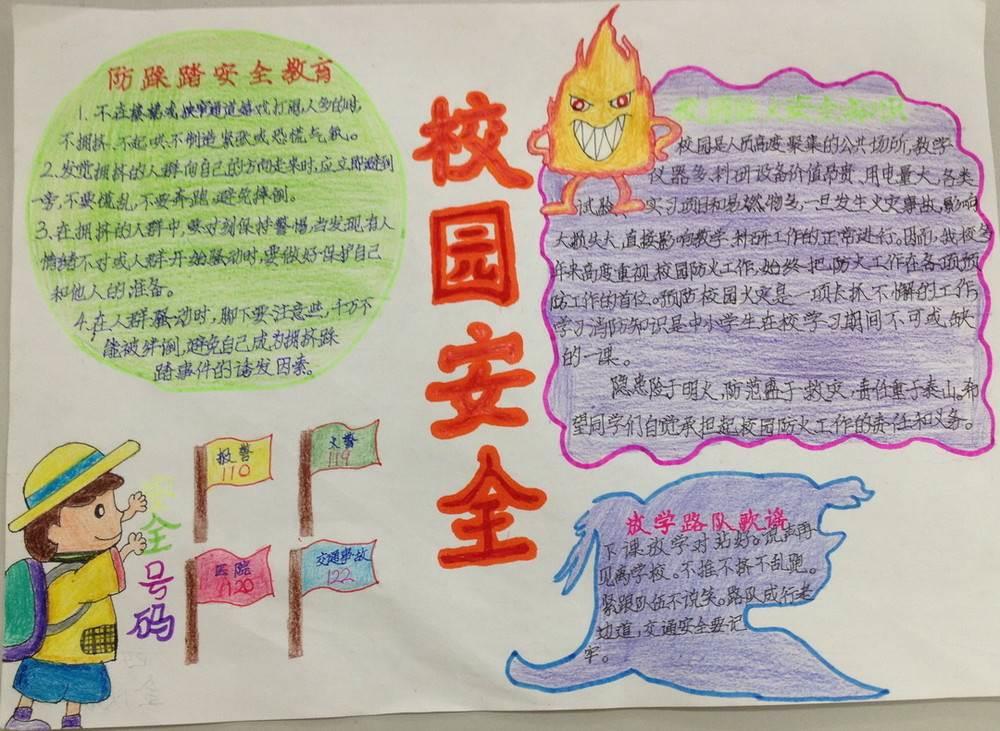 防踩踏安全教育
1、不在楼梯或狭窄通道嬉戏打闹,人多的时
不拥挤、不起哄、不制造紧张或恐慌气氛。
2、发觉拥挤的人群向自己的方向走来时,应立即避到
一旁,不要慌乱,不要奔跑,避免摔倒。
3、在拥挤的人群中,要时刻保持警惕,当发现有人
情绪不对或人群开始骚动时,要做好保护自己
和他人的准备。
4、在人群骚动时,脚下要注意些,千万不
能被绊倒,避免自己成为拥挤踩
踏事件的诱发因素。
校园安全
校园是人员高度聚集的公共场所,教学
仪器多、科研设备价值昂贵、用电量大,各类
试验、实习项目和易燃物多,一旦发生火灾事故,影响
大损失大,直接影响教学、科研工作的正常进行。因而,我校多
年来高度重视校园防火工作,始终把防火工作在各项预
防工作的首位。预防校园火灾是一项长抓不懈的工作
学习消防知识是中小学生在校学习期间不可或缺
的一课。
隐患险于明火,防范盛于救灾,责任重于泰山。希
望同学们自觉承担起校园防火工作的责任和义务。
安全号码
报警
110
火警
119
医院
1120
交通事故
122
放学路队歌谣
下课放学对站好。说声再
见离学校。不推不挤不乱跑。
紧跟队伍不说笑。路队成行走
边道,交通安全要记
牢。